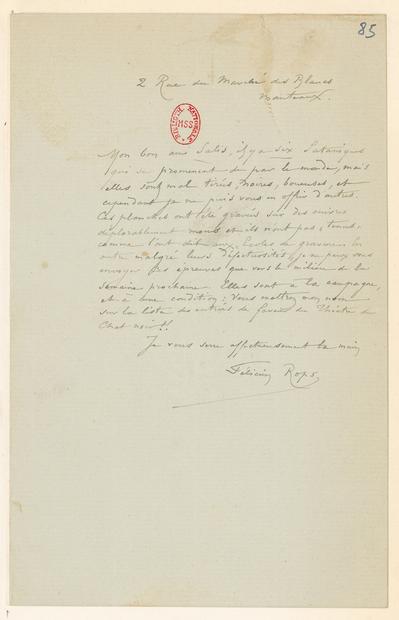 85
2 Rue du Marché des Blancs
Manteaux.
BIBLIOTHÈQUE NATIONALE MSS
Mon bon ami Salis, il y a six Sataniques
qui se promènent de par le monde, mais
elles sont mal tirées, noires, boueuses, et
cependant je ne puis vous en offrir d'autres.
Ces planches ont été gravées sur des cuivres
déplorablement mous et ils n'ont pas "tenus",
comme l'on dit aux Ecoles de gravure. En
outre malgré leurs défectuosités, je ne peux vous
envoyer ces épreuves que vers le milieu de la
semaine prochaine. Elles sont à la campagne,
et à une condition: Vous mettrez mon nom
sur la liste des entrées de faveur du Théâtre du
Chat noir!!
Je vous serre affectueusement la main
Félicien Rops.